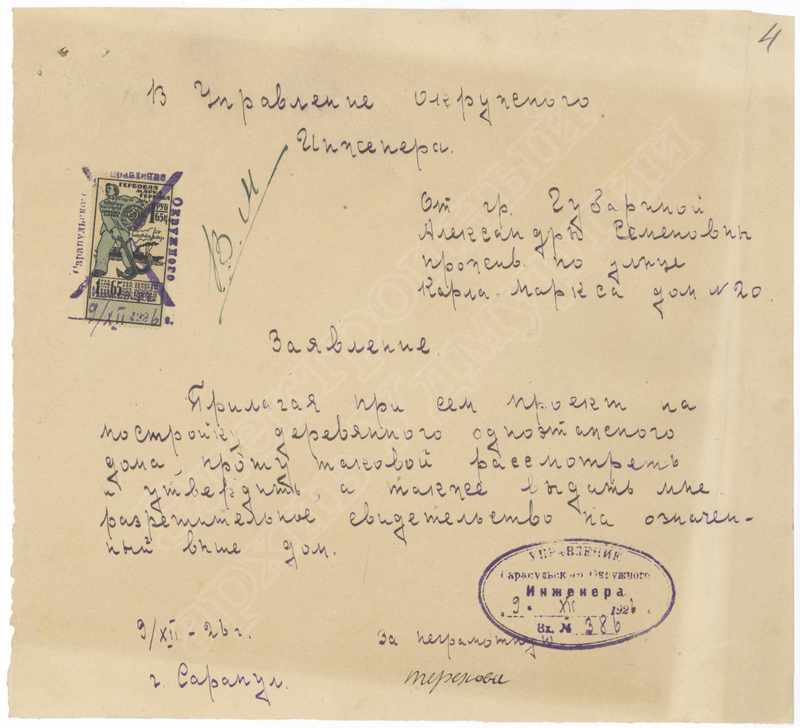 4
В Управление Окружного
Инженера.
От гр. Губариной
Александры Семеновны
прожив. по улице
Карла-Маркса дом №20.
В. М
ГЕРБОВАЯ
МАРКА
1 РУБ
65к
Сарапульского
Окружного
9/XII 1926 г.
Заявление.
Прилагая при сем проект на
постройку деревянного одноэтажного
дома, прошу таковой рассмотреть
и утвердить, а также выдать мне
разрешительное свидетельство на означен-
ный выше дом.
УПРАВЛЕНИЕ
Сарапульского Окружного
Инженера
9. XII 1926
Вх. № 386
9/XII - 26 г.
За неграмотную
г. Сарапул.